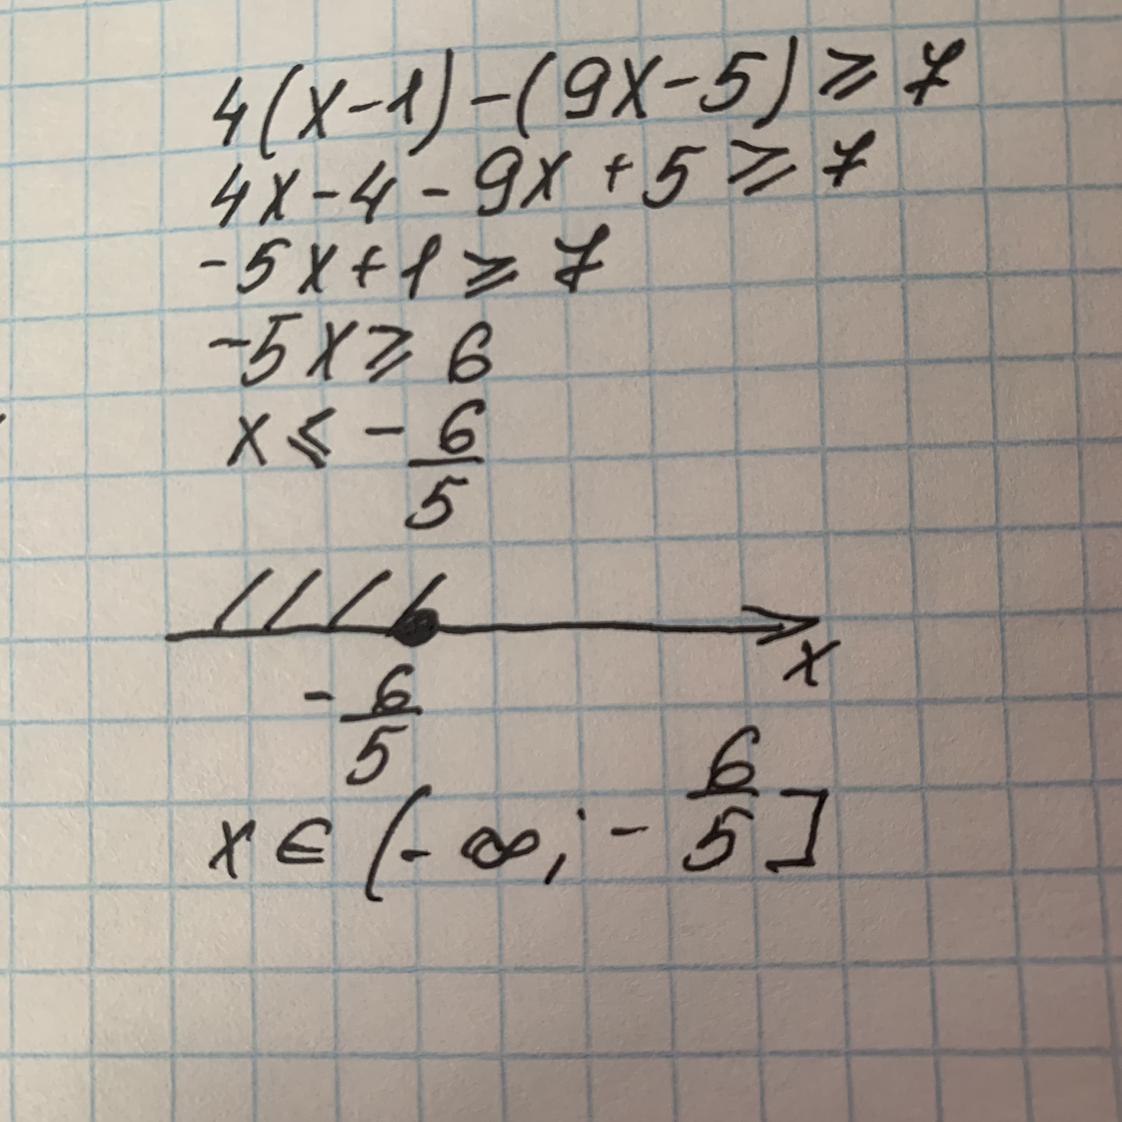 4(x-1)-(9x-5)≥7
4x-4-9x+5≥7
-5x+1≥7
-5x≥6
x≤-6/5
x
-6/5
x∈(-∞;-6/5]